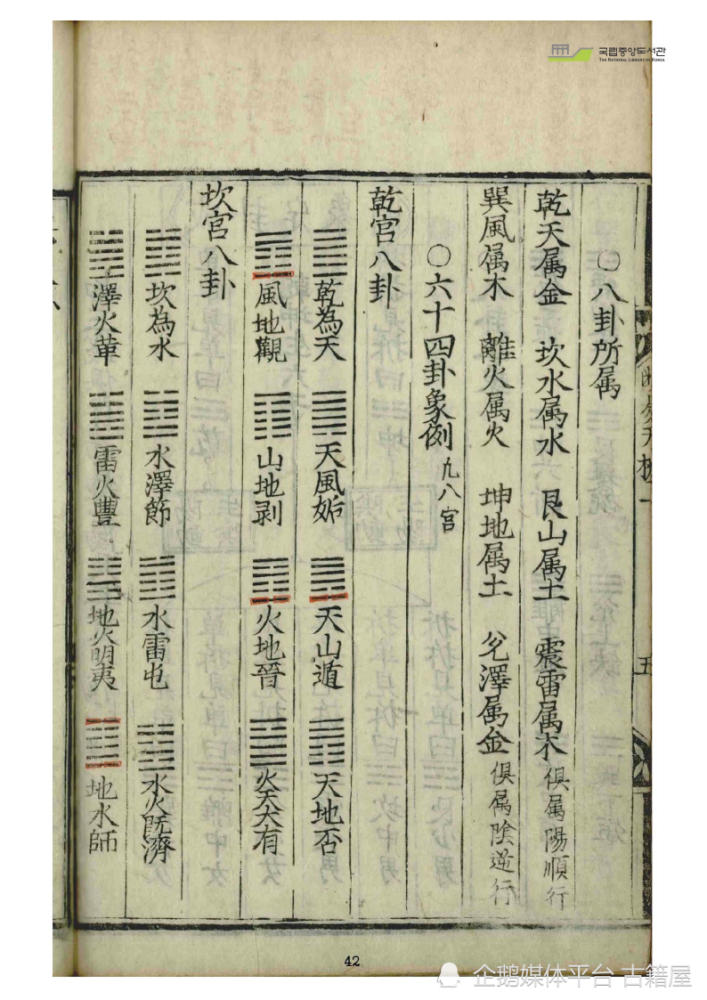 국립중앙도서관
THE NATIONAL LIBRARY OF KOREA
○八卦所属
乾天属金 坎水属水 艮山属土 震雷属木 俱属陽順行
巽風属木 離火属火 坤地属土 兊澤属金 俱属陰逆行
○六十四卦象例 九八宮
乾宮八卦
乾為天 天風姤 天山遁 天地否
風地觀 山地剥 火地晉 火天大有
坎宮八卦
坎為水 水澤節 水雷屯 水火既濟
澤火革 雷火豐 地火明夷 地水師
五
42
企鹅媒体平台 古籍屋